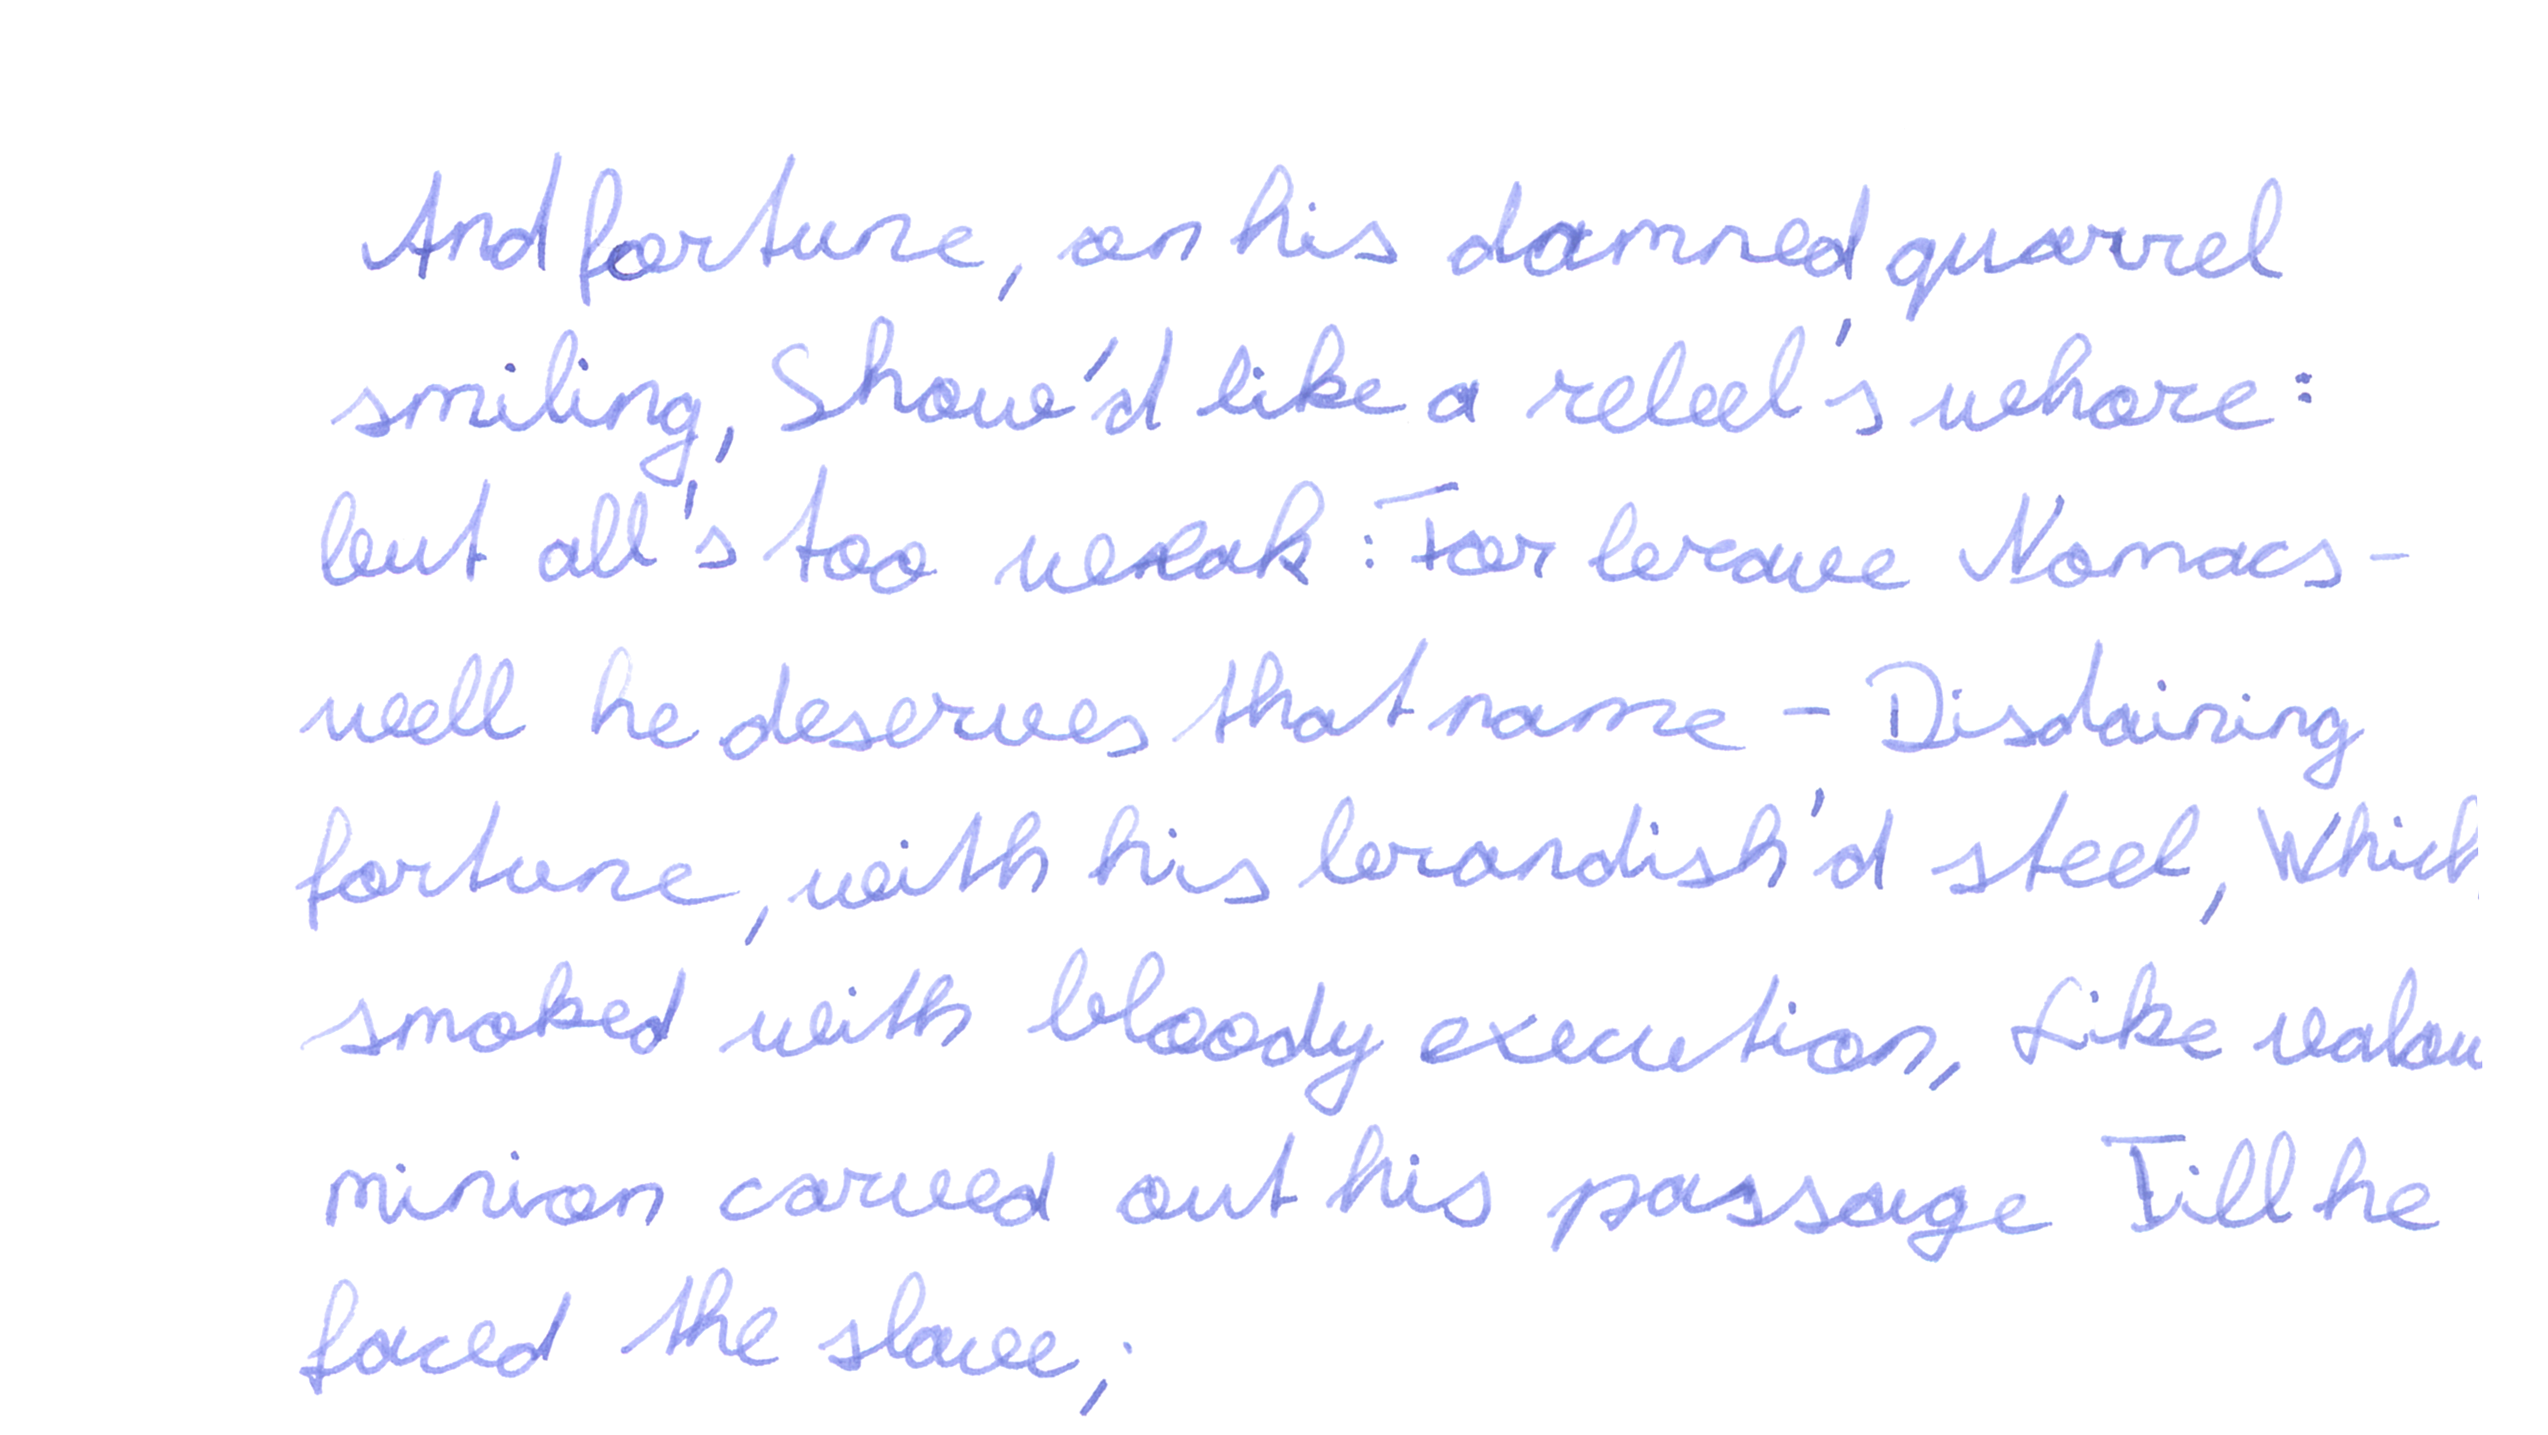 And fortune, on his damned quarrel
smiling, Show'd like a rebel's whore:
but all's too weak: For brave Nomacs -
well he deserves that name - Disdaining
fortune, with his brandish'd steel, Which
smoked with bloody execution, Like valou
minion carved out his passage Till he
faced the slave;